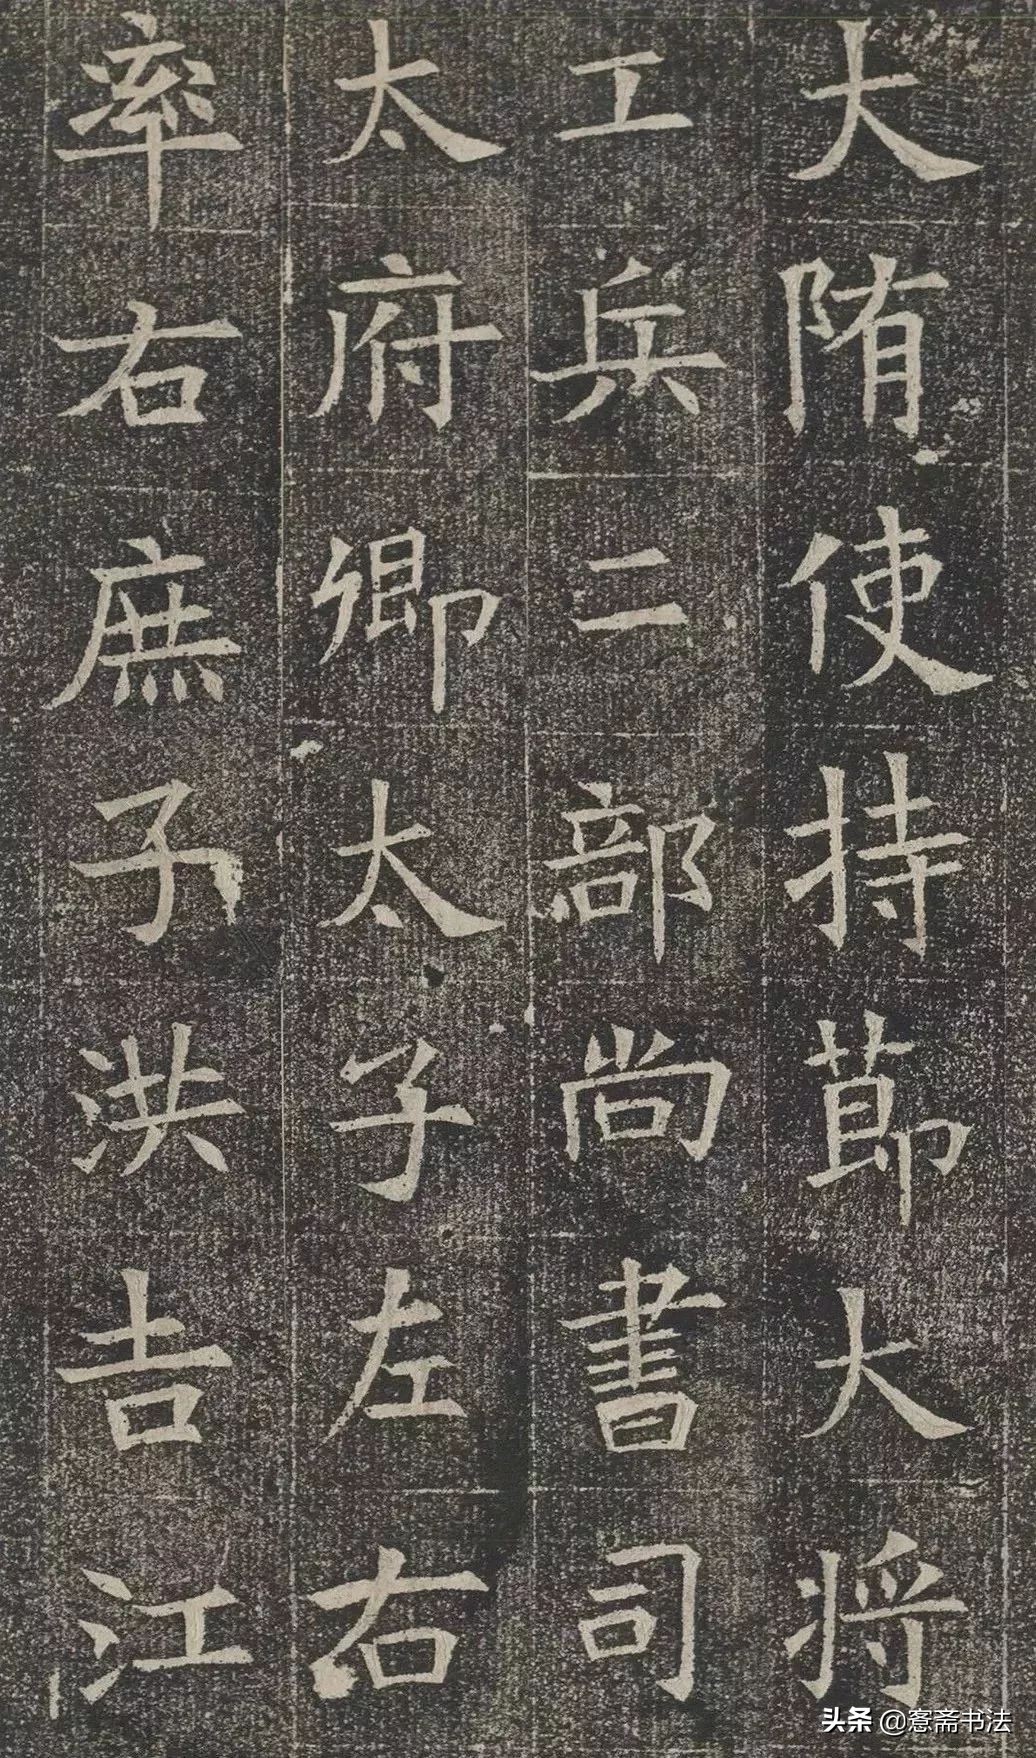 大陏使持莭大将
工兵二部尚書司
太府卿太子左右
率右庶子洪吉江
头条 @窓斋书法